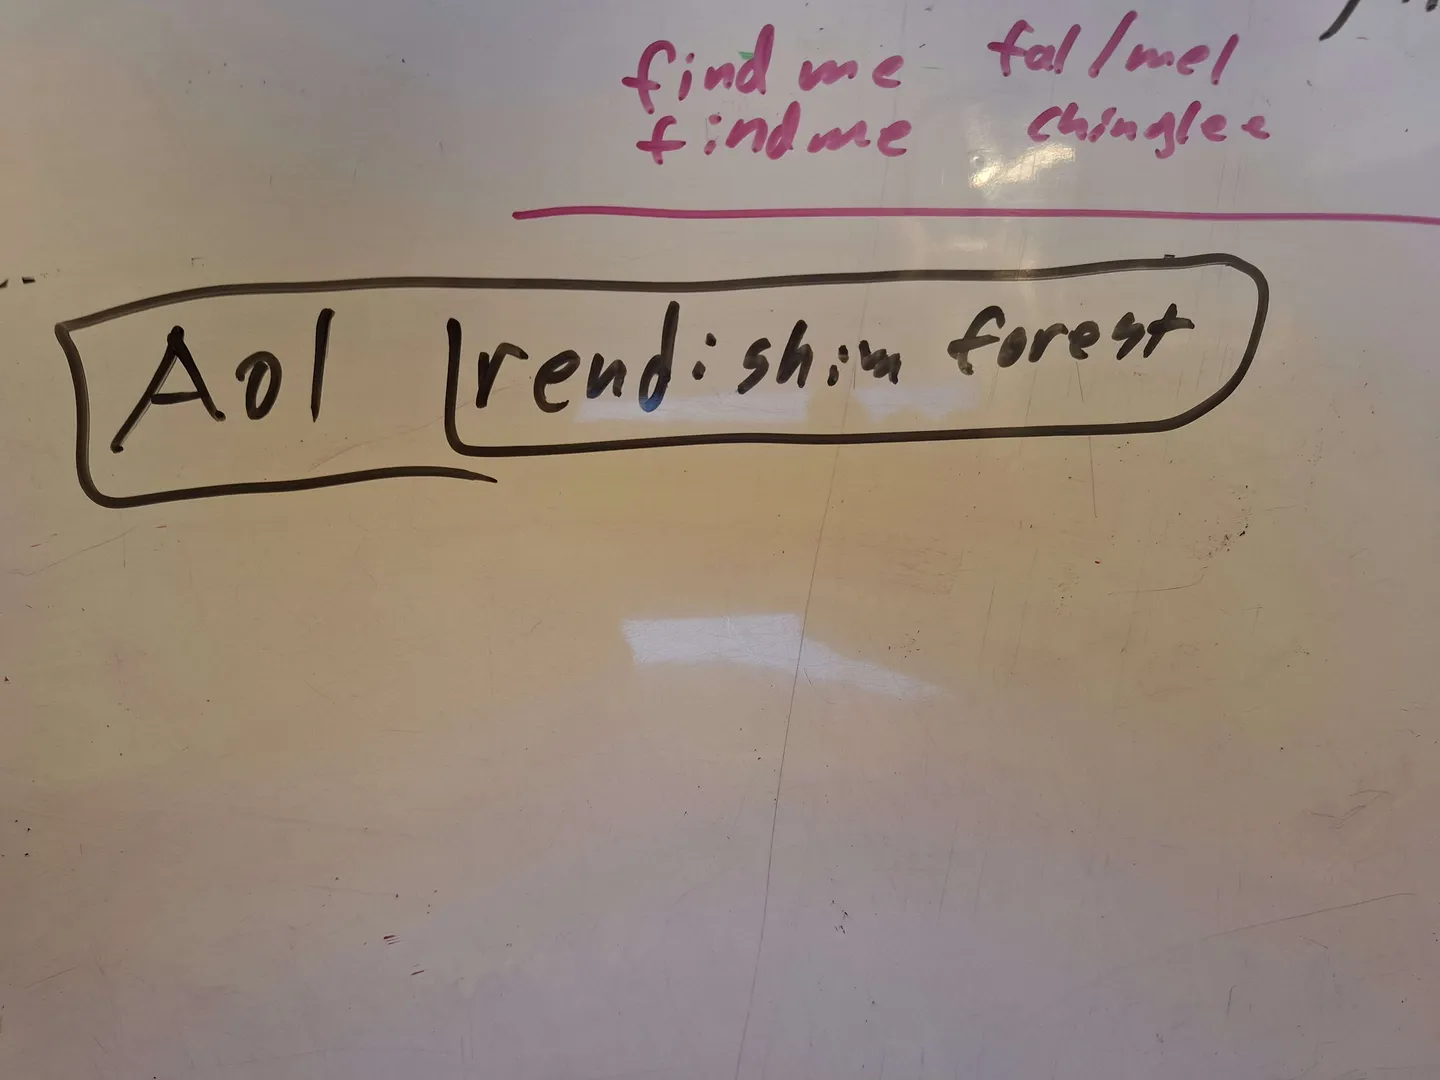 find me fal/mel
findme chinglee
Aol rendishim forest